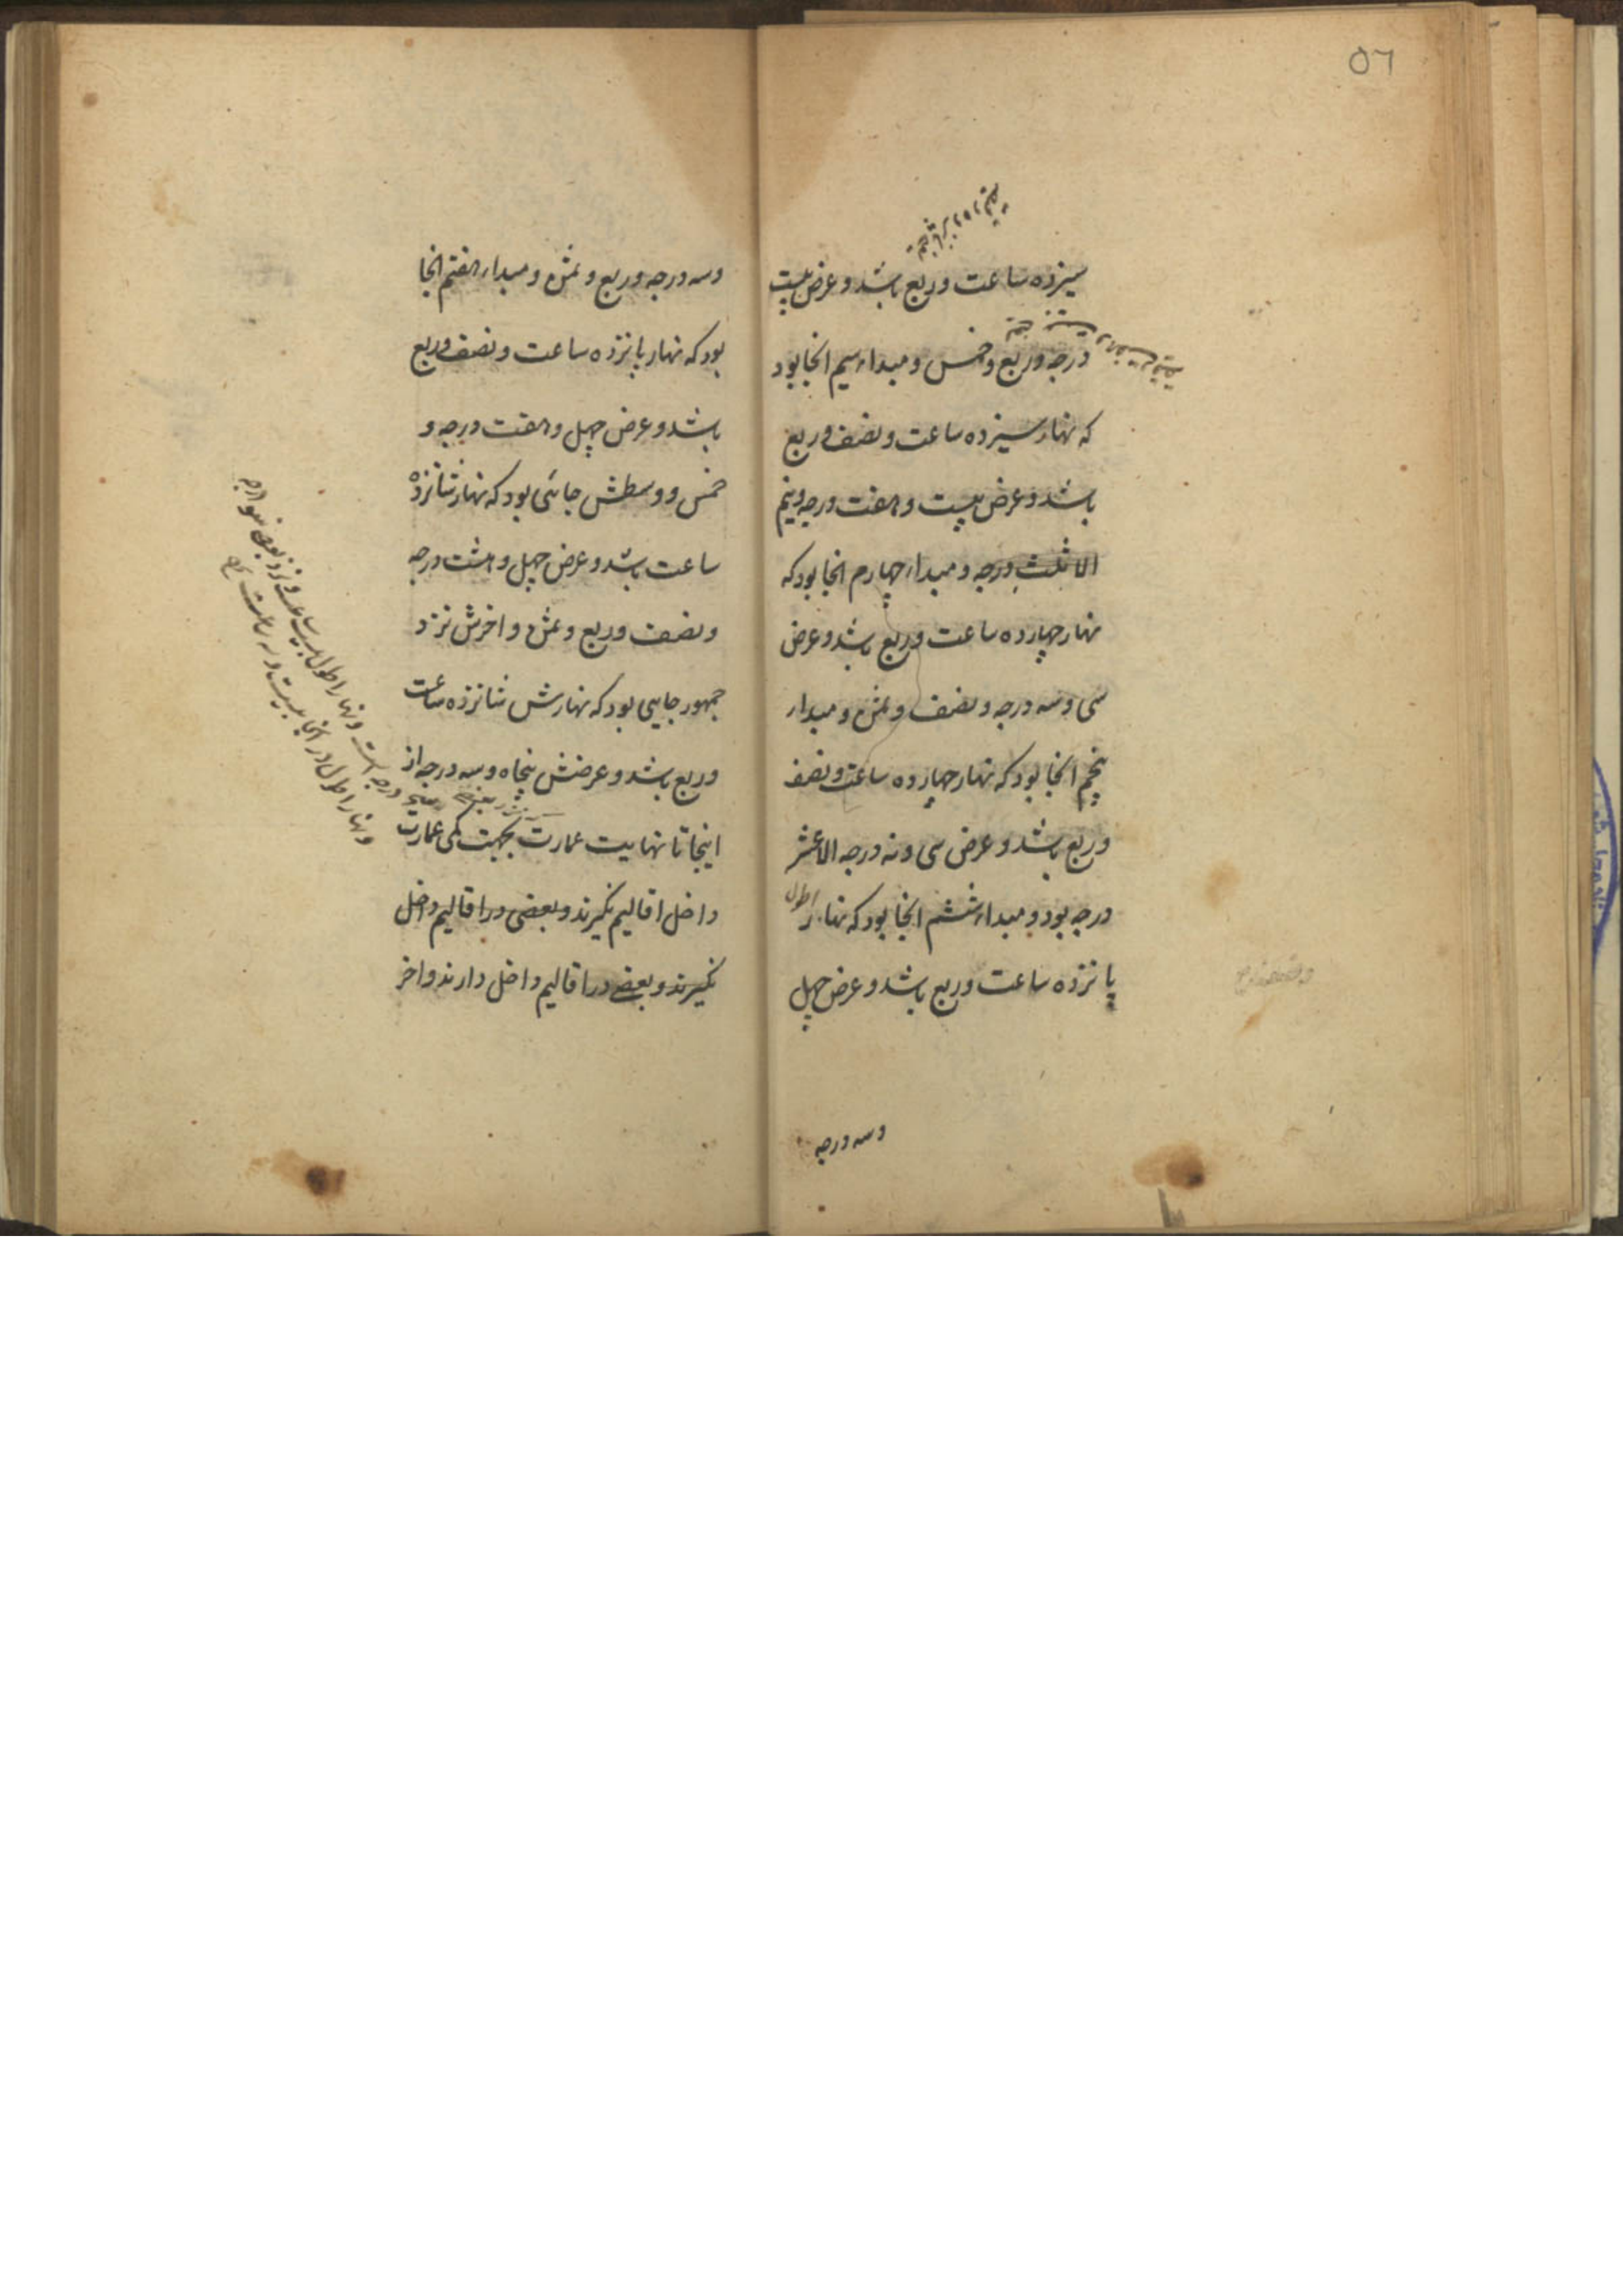 ٥٦
سیزده ساعت وربع باشد و عرض بیست
درجه وربع وخمس و مبداء سیم انجا بود
که نهار سیزده ساعت و نصف وربع
باشد و عرض بیست و هفت درجه ونیم
الا ثلث درجه و مبداء چهارم انجا بود که
نهار چهارده ساعت وربع باشد و عرض
سی و سه درجه و نصف و ثمن و مبداء
پنجم انجا بود که نهار چهارده ساعت ونصف
وربع باشد و عرض سی ونه درجه الا عشر
درجه بود و مبداء ششم انجا بود که نهار اطول
پانزده ساعت وربع باشد و عرض چهل
وسه درجه
وسه درجه وربع و ثمن و مبداء هفتم انجا
بود که نهار پانزده ساعت ونصف وربع
باشد و عرض چهل و هفت درجه و
خمس و وسطش جائی بود که نهار شانزده
ساعت باشد و عرض چهل و هشت درجه
ونصف وربع و ثمن و اخرش نزد
جمهور جایی بود که نهارش شانزده ساعت
وربع باشد و عرضش پنجاه وسه درجه از
اینجا تا نهایت عمارت بجهت کمی عمارت
داخل اقالیم نگیرند و بعضی در اقالیم داخل
نگیرند و بعضی در اقالیم داخل دارند واخر
درجه است ونهار اطول بیست ساعت ونزد بعضی
ونهار اطول در انجا بیست وسه ساعت